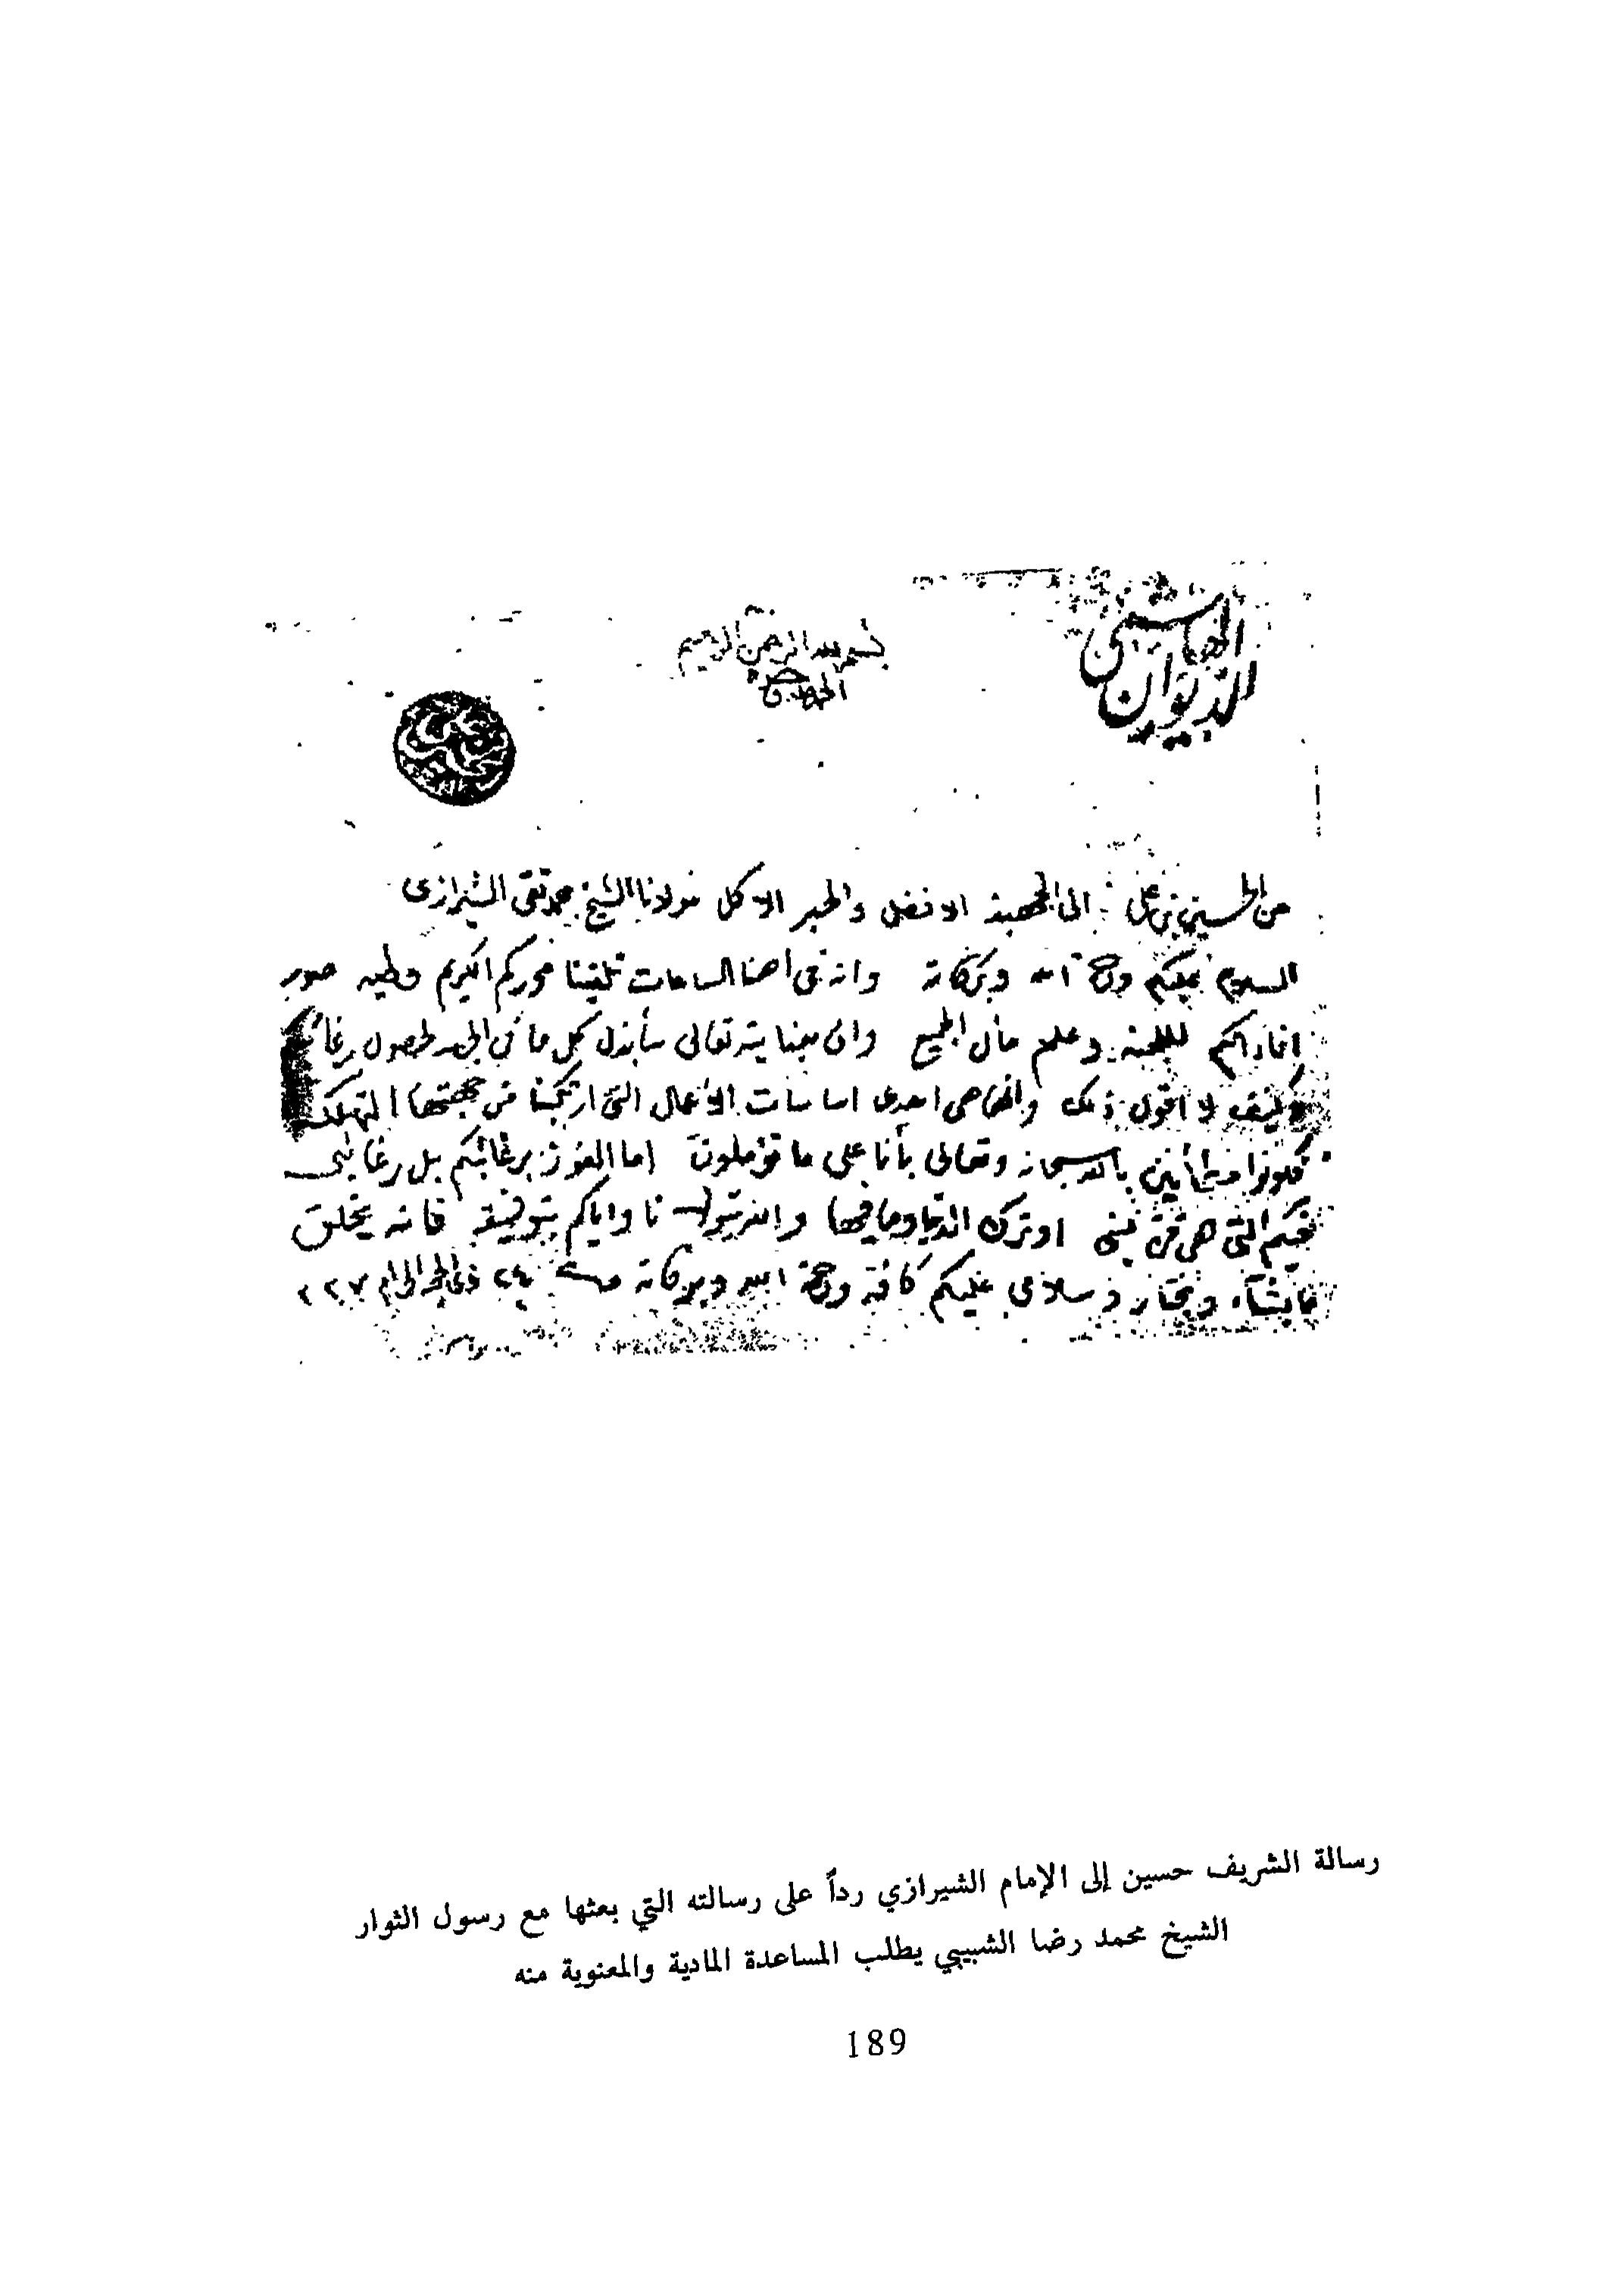 الديوان الهاشمي
بسم الله الرحمن الرحيم
الحمد لله
من الحسين بن علي الى الجهبذ الافضل والحبر الاكمل مولانا الشيخ محمد تقي الشيرازي
السلام عليكم ورحمة الله وبركاته وانه في اهنا الساعات تلقينا محرركم الكريم وطيه صور
افاداتكم للجنة وعلم مآل الجميع وان بعنايته تعالى سأبذل كل ما في الجهد لحصول
وكيف لا اقول ذلك وانها هي احدى اساسات الأعمال التي ارتكبنا من جهتها
فكونوا مطمأنين بالله سبحانه وتعالى بأنا على ما تؤملون اما الفوز برغائبكم بل رغائبي
فيكم التي هي او ترك الدنيا وما فيها والله يتولانا واياكم بتوفيقه فانه يخلق
ما يشاء ويختار وسلامي عليكم كافة ورحمة الله وبركاته ٢٤ ذي الحجة الحرام
رسالة الشريف حسين إلى الإمام الشيرازي رداً على رسالته التي بعثها مع رسول الثوار
الشيخ محمد رضا الشبيبي يطلب المساعدة المادية والمعنوية منه
189